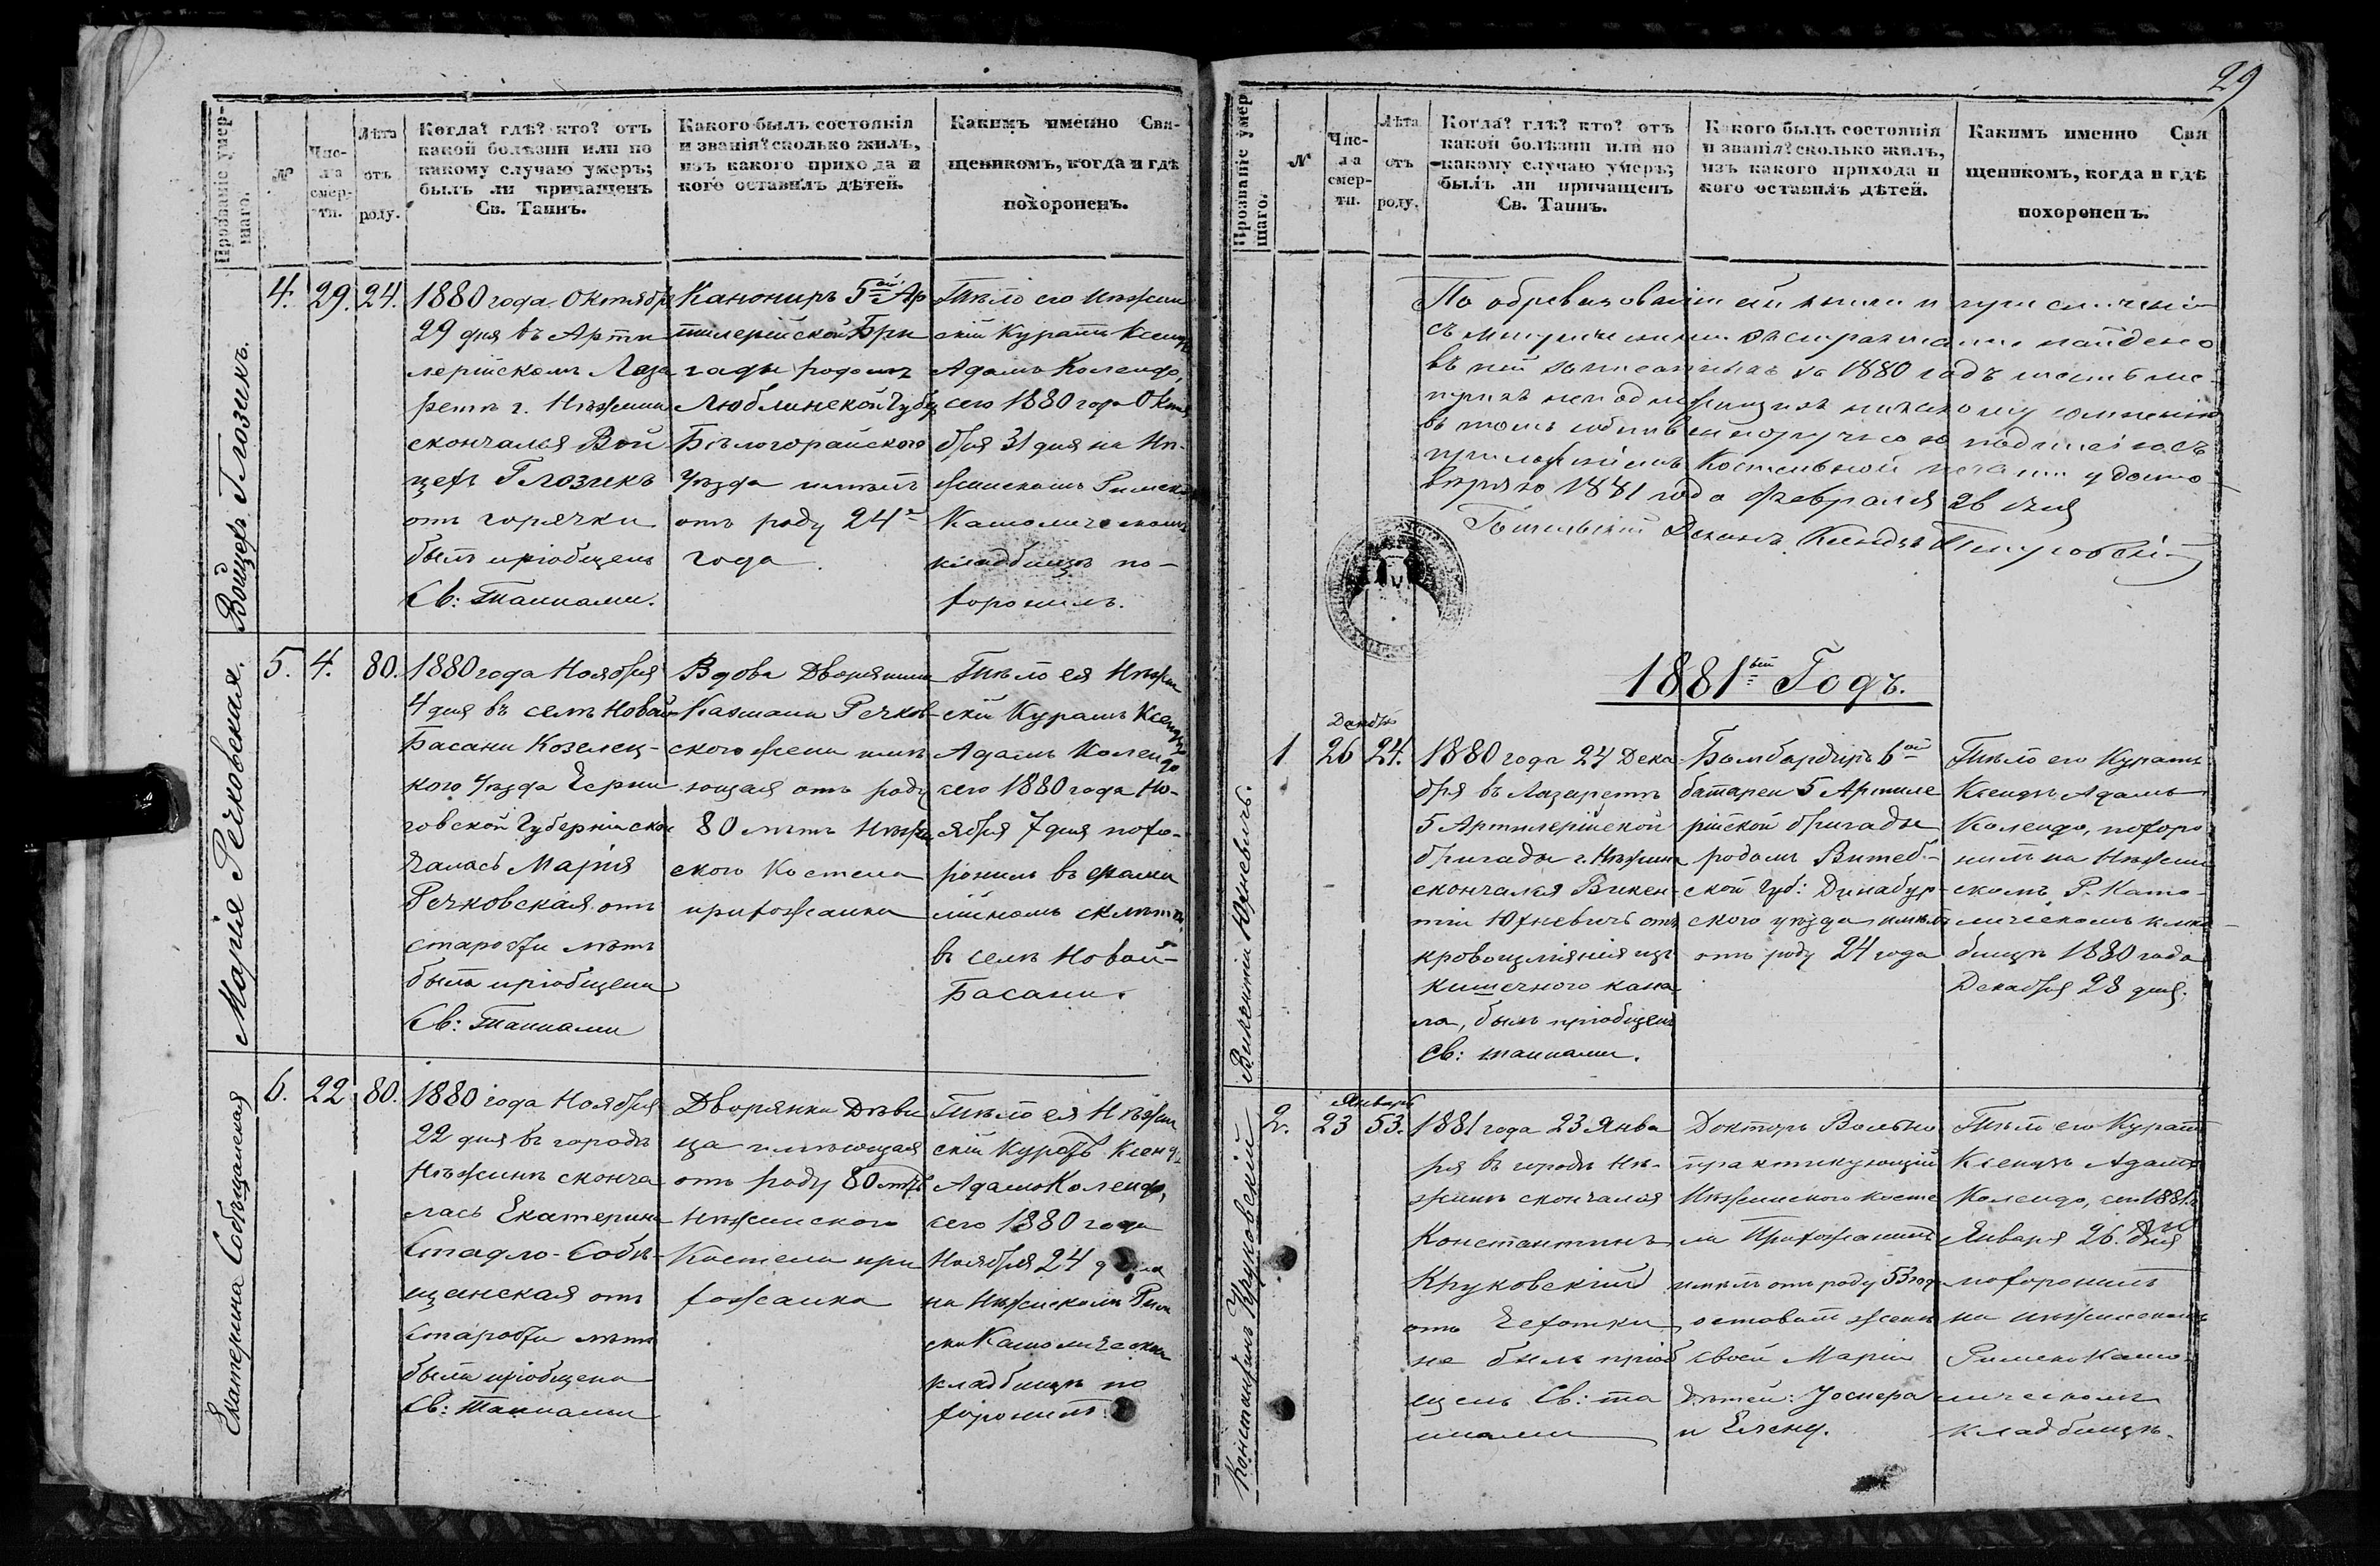 29
Прозваніе умер-
шаго.
№
Чис-
ла
смер-
ти.
Лѣта
отъ
роду.
Когда? гдѣ? кто? отъ
какой болѣзни или по
какому случаю умеръ;
былъ ли причащенъ
Св. Таинъ.
Какого былъ состоянія
и званія? сколько жилъ,
изъ какого прихода и
кого оставилъ дѣтей.
Какимъ именно Свя-
щенникомъ, когда и гдѣ
похороненъ.
Войцехъ Глозикъ.
4.
29.
24.
1880 года Октября
29 дня въ Арти
лерійскомъ Лаза
ретѣ г. Нѣжина
скончался Вой
цехъ Глозикъ
отъ горячки
былъ пріобщенъ
Св: Таинами.
Канониръ 5ой Ар
тилерійской Бри
гады родомъ
Люблинской Губ
Бѣлогорайского
Уѣзда
отъ роду 24
года.
Тѣло его Нѣжин
скій Куратъ Ксендзъ
Адамъ Колендо,
сего 1880 года Октя
бря 31 дня на Нѣ-
жинскомъ Римско
Католическомъ
кладбищѣ по-
хоронилъ.
Марія Речковская.
5.
4.
80.
1880 года Ноября
4 дня въ селѣ Новой
Басани Козелец-
кого Уѣзда Черни
говской Губерніи скон
чалась Марія
Речковская отъ
старости лѣтъ
была пріобщена
Св: Таинами
Вдова Дворянина
Речков-
ского жена имѣ
ющая отъ роду
80 лѣтъ Нѣжин
ского Костела
прихожанка
Тѣло ея Нѣжин
скій Куратъ Ксендзъ
Адамъ Колендо
сего 1880 года Но-
ября 7 дня похо-
ронилъ въ фами
лійномъ склепѣ
въ селѣ Новой-
Басани.
Екатерина Собѣщанская
6.
22
80.
1880 года Ноября
22 дня въ городѣ
Нѣжинѣ сконча
лась Екатерина
Стадло-Собѣ-
щанская отъ
старости лѣтъ
была пріобщена
Св: Таинами
Дворянка Дѣви
ца имѣющая
отъ роду 80 лѣтъ
Нѣжинского
Костела при
хожанка
Тѣло ея Нѣжин
скій Куратъ Ксендзъ
Адамъ Колендо,
сего 1880 года
Ноября 24 дня
на Нѣжинскомъ Рим
ско Католическом
кладбищѣ по
хоронилъ.
Прозваніе умер
шаго.
№
Чис-
ла
смер-
ти.
Лѣта
отъ
роду.
Когда? гдѣ? кто? отъ
какой болѣзни или по
какому случаю умеръ;
былъ ли причащенъ
Св. Таинъ.
Какого былъ состоянія
и званія? сколько жилъ,
изъ какого прихода и
кого оставилъ дѣтей.
Какимъ именно Свя
щенникомъ, когда и гдѣ
похороненъ.
По обревизованіи сей книги и при сличеніи
съ найдено
въ ней записанныхъ за 1880 годъ шесть ме-
трикъ неподлежащихъ никакому сомненію
въ томъ собственноручною подписью съ
приложеніемъ Костельной печати удосто
вѣряю 1881 года Февраля 26 дня
Деканъ Ксендзъ
1881ый Годъ.
Викентій Юхневичъ.
1
Декабрь
26
24.
1880 года 24 Дека
бря въ Лазаретѣ
5 Артилерійской
бригады г. Нѣжина
скончался Викен-
тій Юхневичъ отъ
кровоизліянія изъ
кишечного кана
ла, былъ пріобщенъ
Св: таинами.
Бомбардиръ 6ой
батареи 5 Артиле
рійской бригады
родомъ Витеб-
ской Губ: Динабур-
ского уѣзда имѣлъ
отъ роду 24 года
Тѣло его Куратъ
Ксендзъ Адамъ
Колендо, похоро
нилъ на Нѣжин
скомъ Р. Като-
лическомъ клад-
бищѣ 1880 года
Декабря 28 дня.
Константинъ Круковскій
2.
Январь
23
53.
1881 года 23 Янва
ря въ городѣ Нѣ-
жинѣ скончался
Константинъ
Круковскій
отъ Чехотки
не былъ пріоб
щенъ Св: та
инами
Докторъ Вольно
практикующій
Нѣжинского косте
ла Прихожанинъ
имѣлъ отъ роду 53 год
оставилъ жену
своей Марію
Дѣтей:
и Елену.
Тѣло его Куратъ
Ксендзъ Адамъ
Колендо, сего 1881 г.
Января 26. дня
похоронилъ
на Нѣжинскомъ
Римско Като-
лическомъ
кладбищѣ.